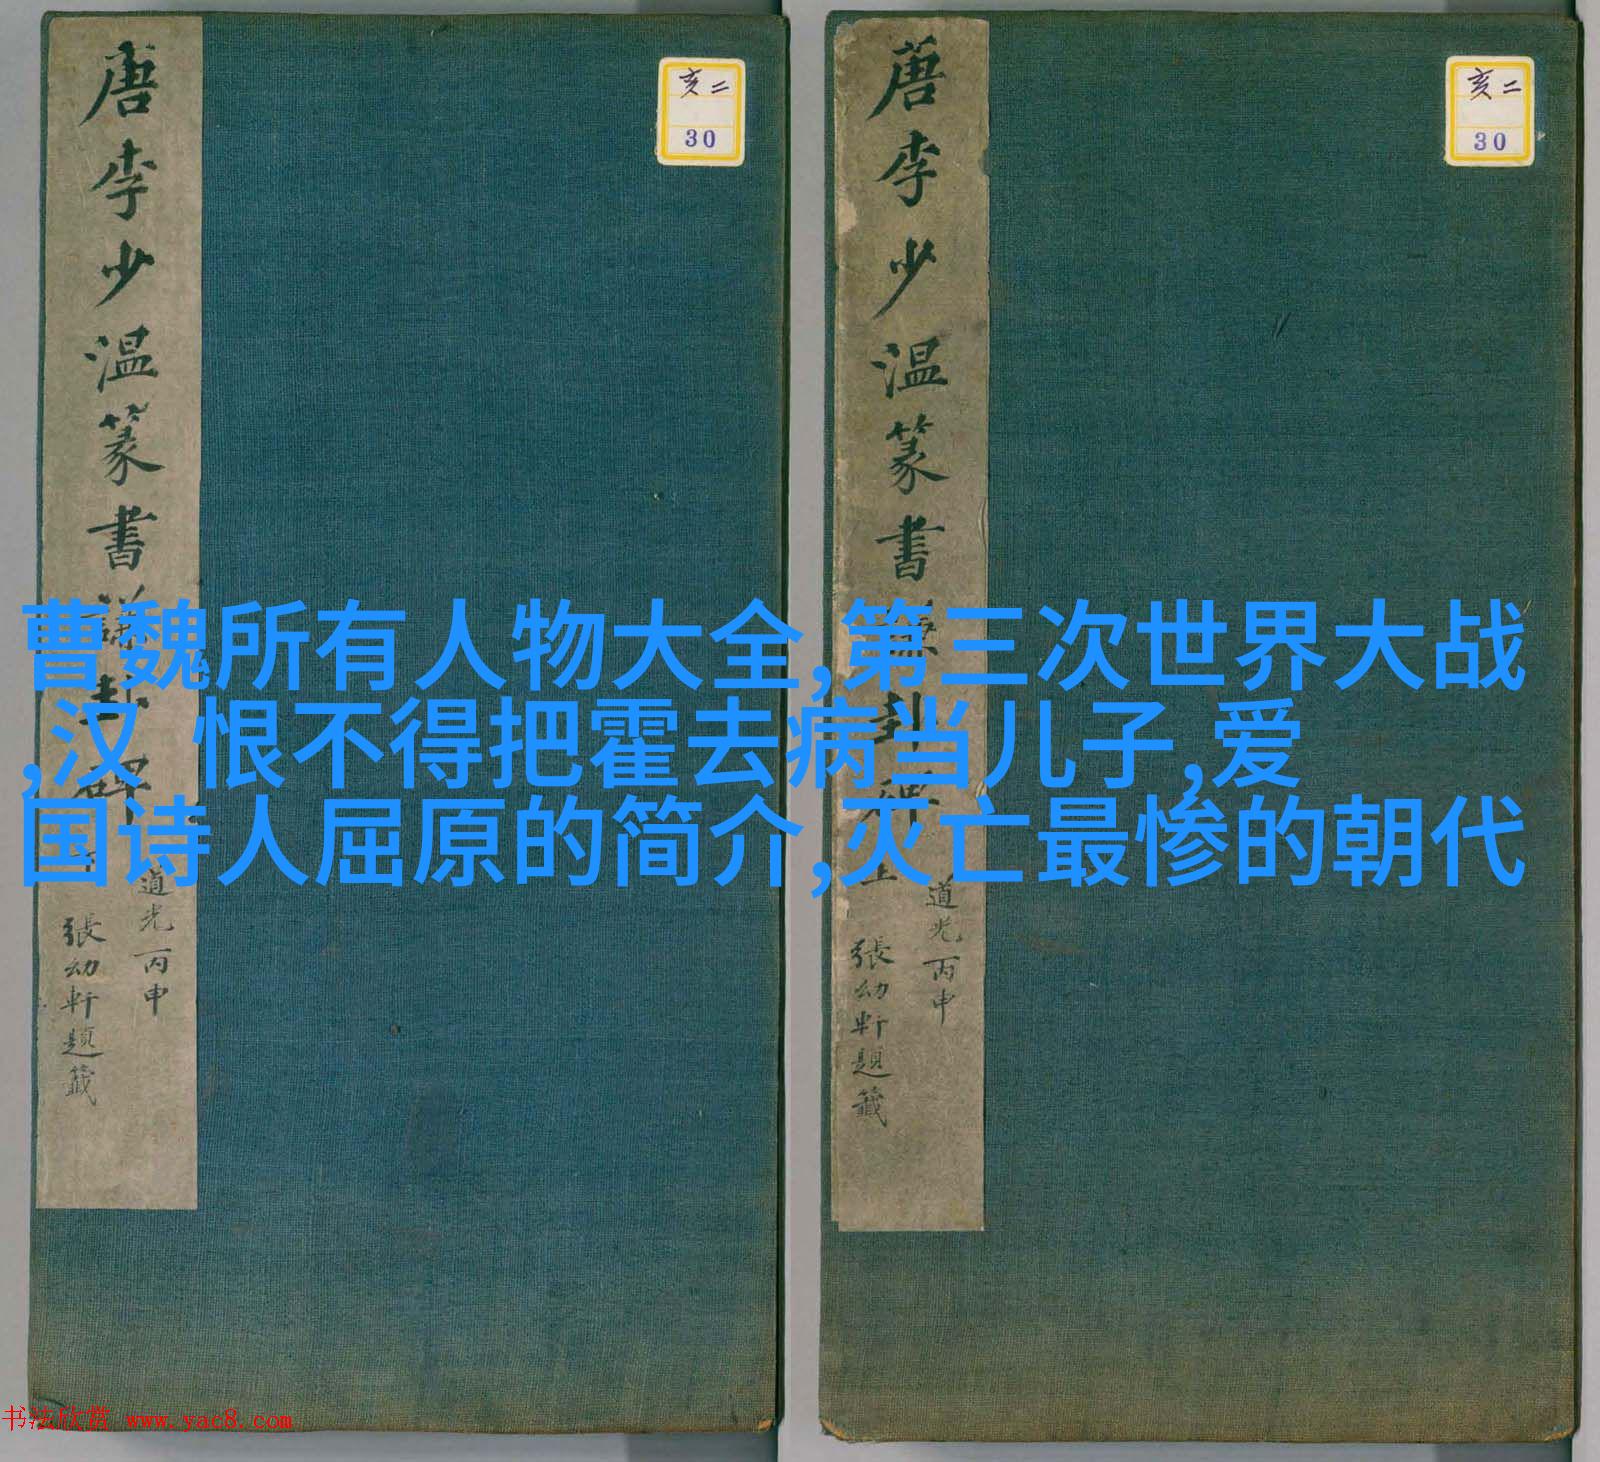 唐李少温篆書謙卦碑
道光丙申
張幼軒題籤
亥二
30
唐李少温篆書謙卦碑
道光丙申
張幼軒題籤
亥二
30
曹魏所有人物大全,第三次世界大战
,汉 恨不得把霍去病当儿子,爱
国诗人屈原的简介,灭亡最惨的朝代
书法欣赏 www.yac8.com